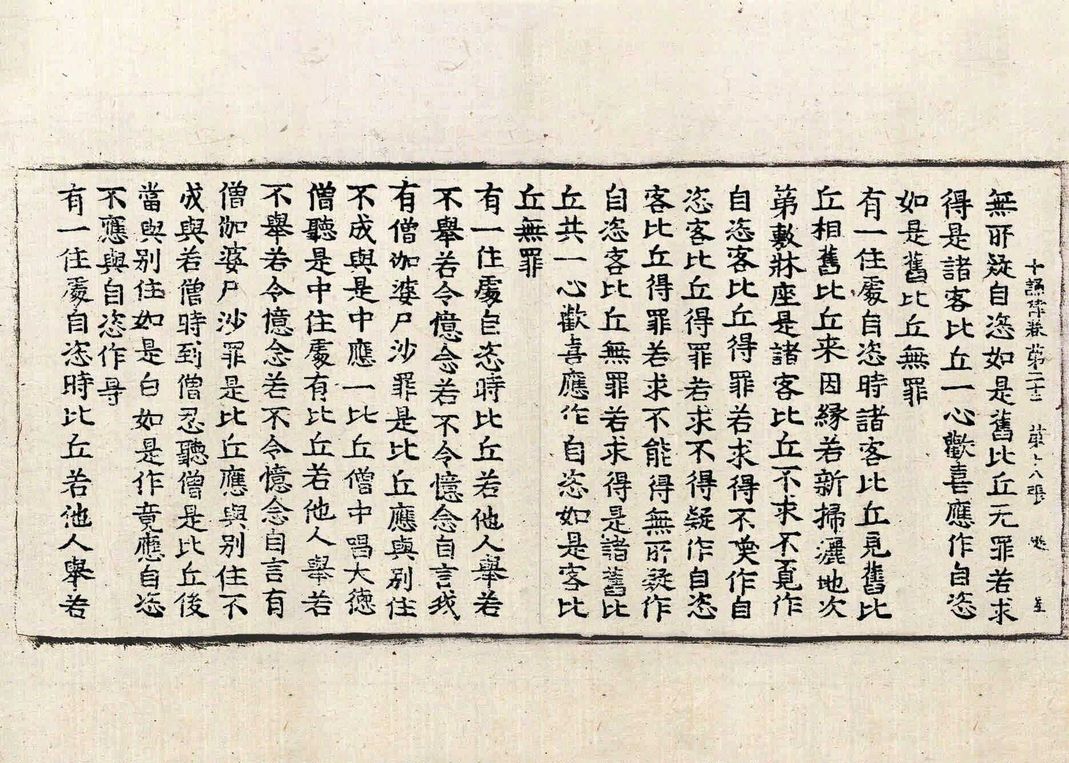 十誦律卷第二十三 第十八張
無所疑自恣如是舊比丘无罪若求
得是諸客比丘一心歡喜應作自恣
如是舊比丘無罪
有一住處自恣時諸客比丘見舊比
丘相舊比丘来因緣若新掃灑地次
第敷牀座是諸客比丘不求不覓作
自恣客比丘得罪若求得不喚作自
恣客比丘得罪若求不得疑作自恣
客比丘得罪若求不能得無所疑作
自恣客比丘無罪若求得是諸舊比
丘共一心歡喜應作自恣如是客比
丘無罪
有一住處自恣時比丘若他人舉若
不舉若令憶念若不令憶念自言我
有僧伽婆尸沙罪是比丘應與別住
不成與是中應一比丘僧中唱大德
僧聽是中住處有比丘若他人舉若
不舉若令憶念若不令憶念自言有
僧伽婆尸沙罪是比丘應與別住不
成與若僧時到僧忍聽僧是比丘後
當與別住如是白如是作竟應自恣
不應與自恣作㝵
有一住處自恣時比丘若他人舉若